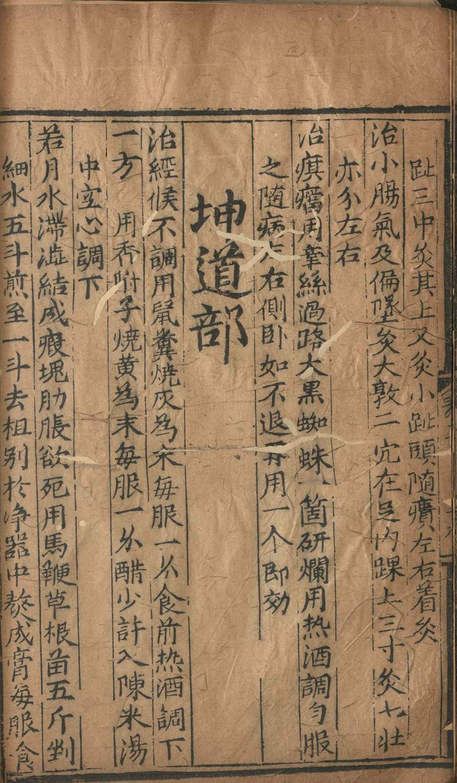 趾三中灸其上又灸小趾頭随㿗左右着灸
治小腸氣及偏墜灸大敦二穴在足内踝上三寸灸七壯
亦分左右
治㿗癘用牽絲過路大黑蜘蛛一箇研爛用热酒調匀服
之随病左右側卧如不退再用一个即効
坤道部
治經候不調用鼠糞燒灰為末每服一分食前热酒調下
一方 用香附子燒黄為末每服一分醋少許入陳米湯
中空心調下
若月水滯澁結成瘕塊肋脹欲死用馬鞭草根苗五斤剉
細水五斗煎至一斗去柤别於净器中熬成膏每服食